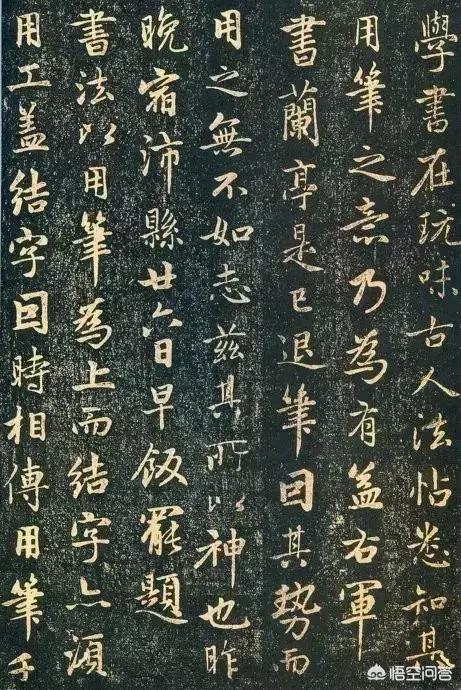 學書在玩味古人法帖悉知其
用筆之意乃為有益右軍
書蘭亭是已退筆因其勢而
用之無不如志茲其所以神也昨
晚宿沛縣廿六日早飯罷題
書法以用筆為上而結字亦須
用工盖結字因時相傳用筆千
悟空问答